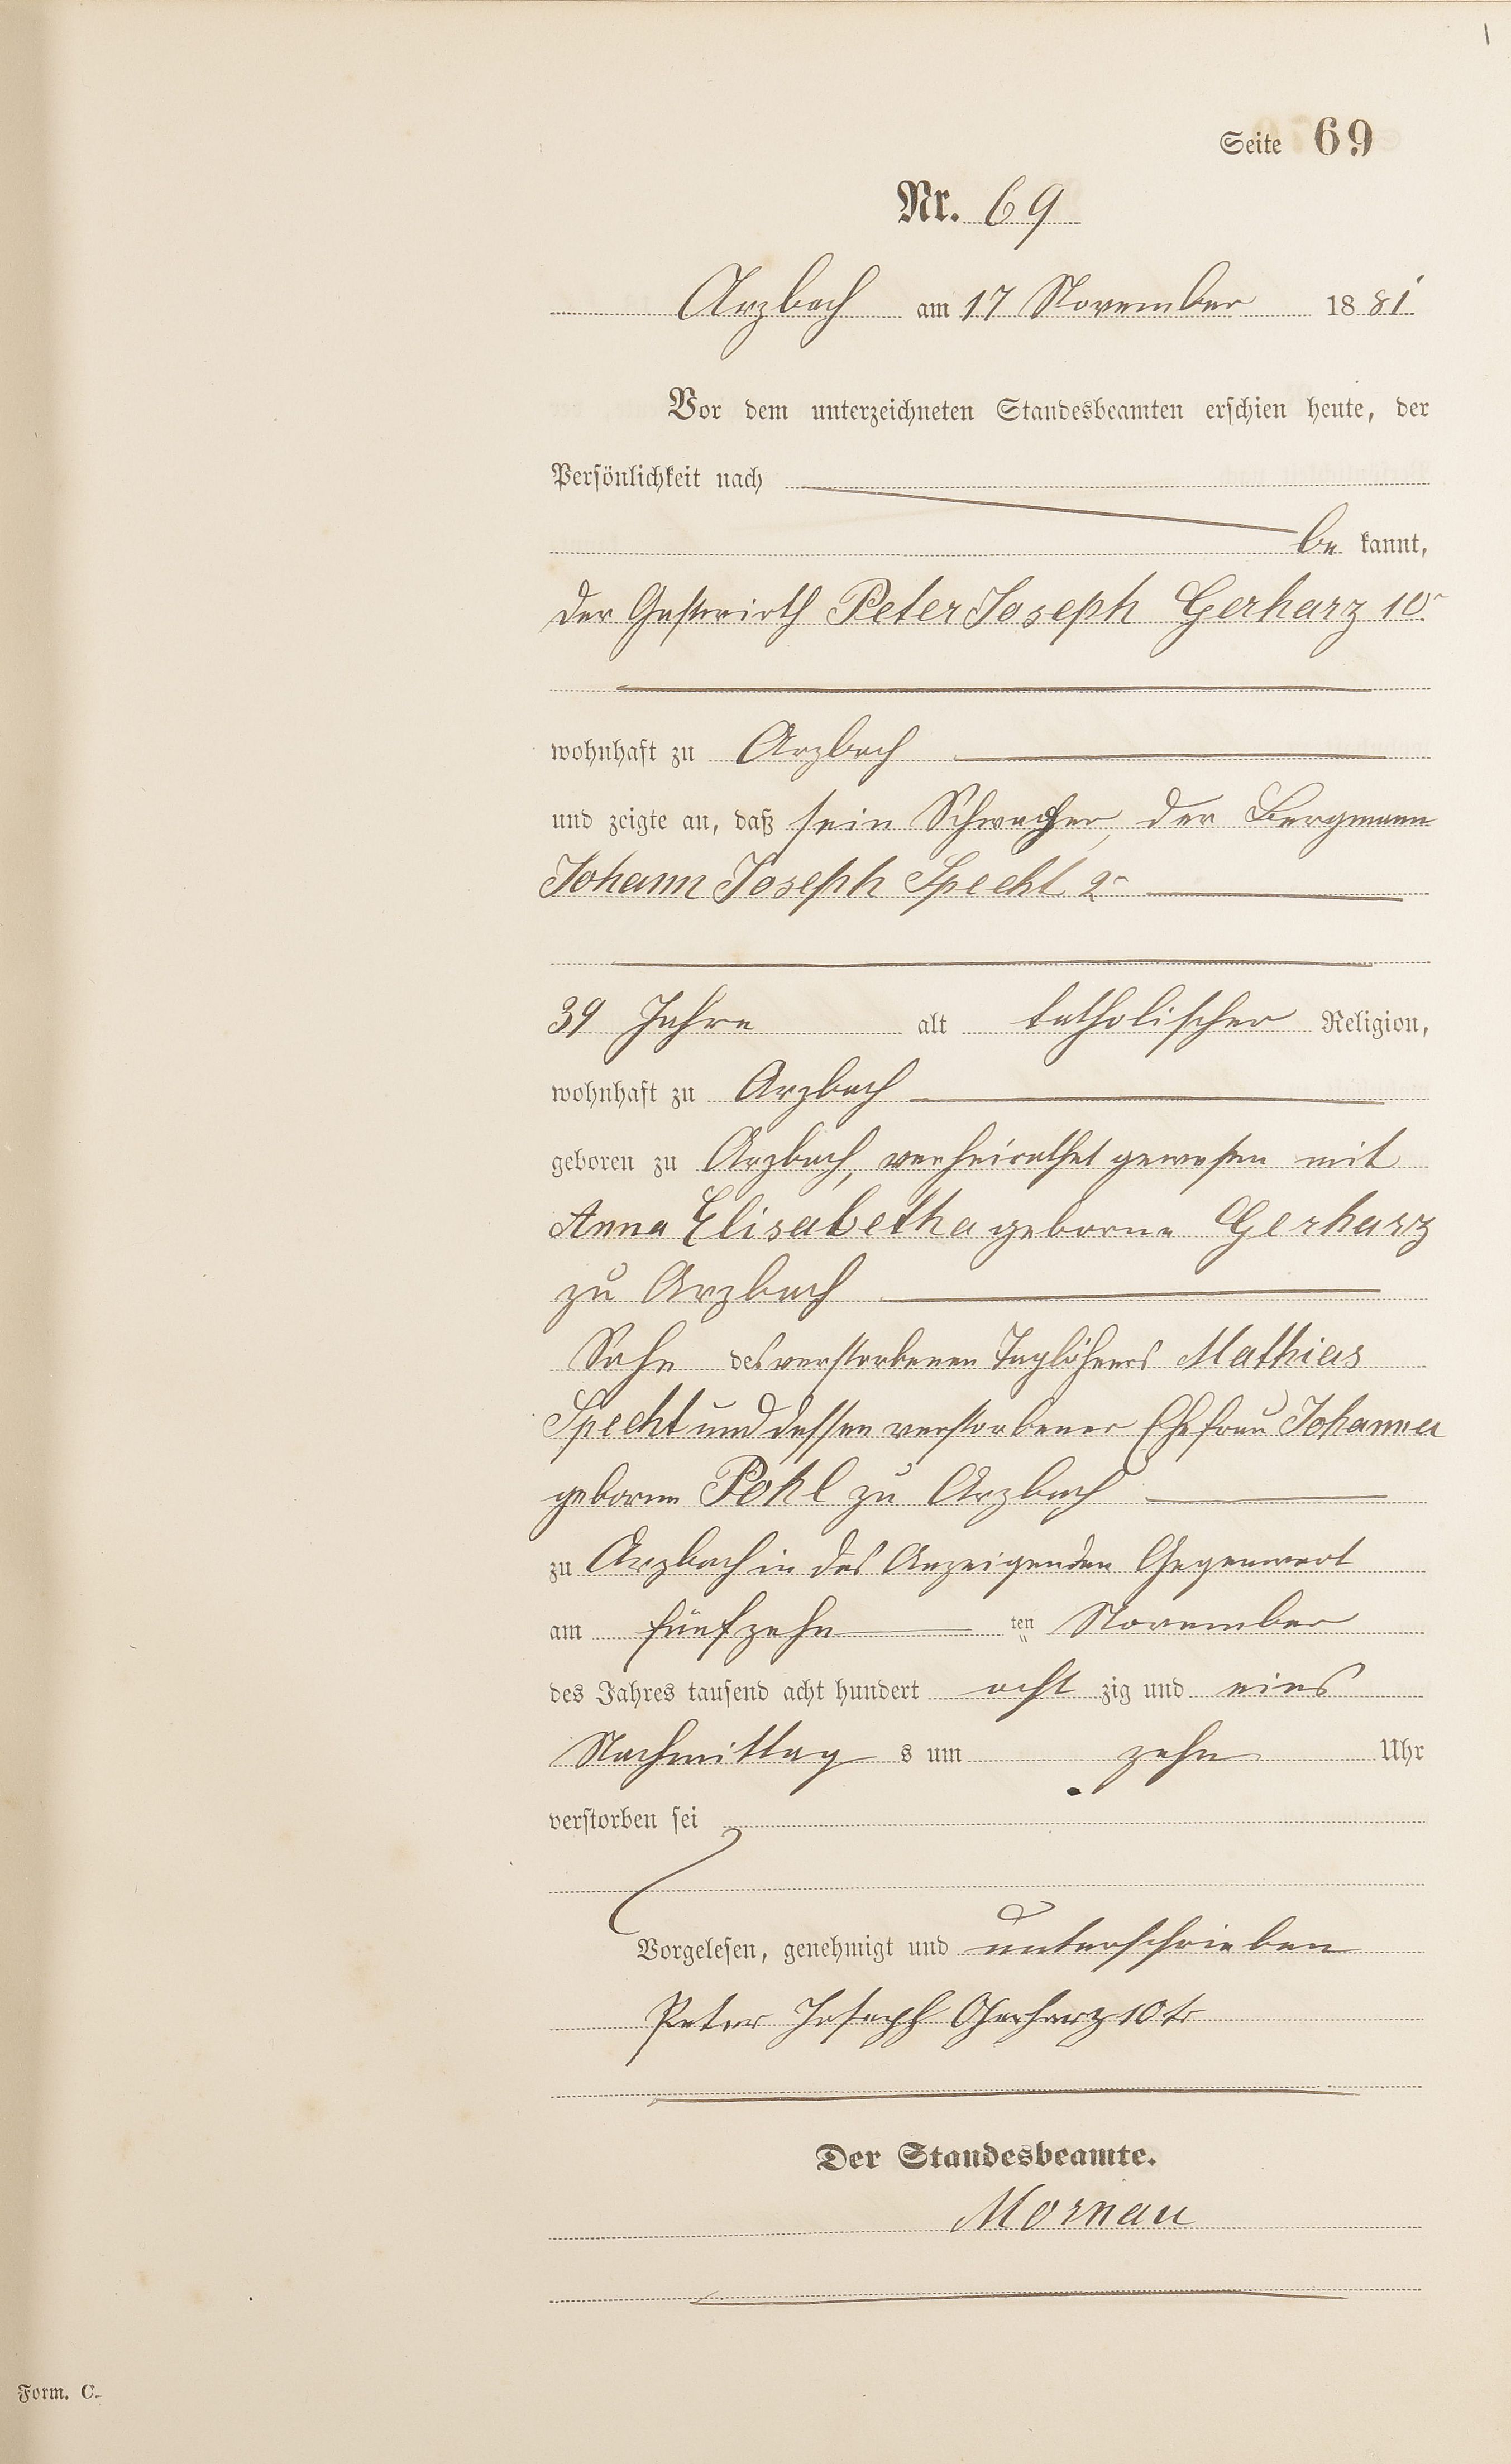 Seite 69
Nr. 69
Arzbach am 17 November 1881
Vor dem unterzeichneten Standesbeamten erschien heute, der
Persönlichkeit nach
be kannt,
der Gastwirth Peter Joseph Gerharz 10r
wohnhaft zu Arzbach
und zeigte an, daß sein Schwager, der Bergmann
Johann Joseph Specht 2r
39 Jahre alt katholischer Religion,
wohnhaft zu Arzbach
geboren zu Arzbach, verheirathet gewesen mit
Anna Elisabetha geborne Gerharz
zu Arzbach
Sohn des verstorbenen Taglöhners Mathias
Specht und dessen verstorbener Ehefrau Johanna
geborne Pohl zu Arzbach
zu Arzbach in des Anzeigenden Gegenwart
am fünfzehn ten November
des Jahres tausend acht hundert acht zig und eins
Nachmittag s um zehn Uhr
verstorben sei
Vorgelesen, genehmigt und unterschrieben
Peter Joseph Gerharz 10tr
Der Standesbeamte.
Mornau
Form. C.